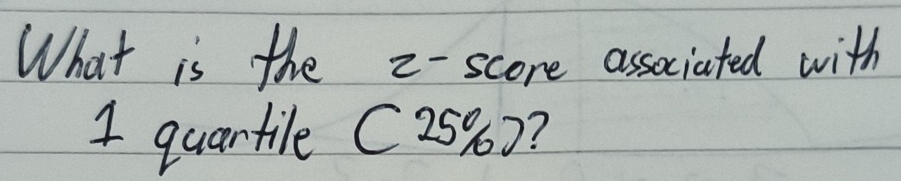 What is the z-score associated with
1 quartile (25%)?